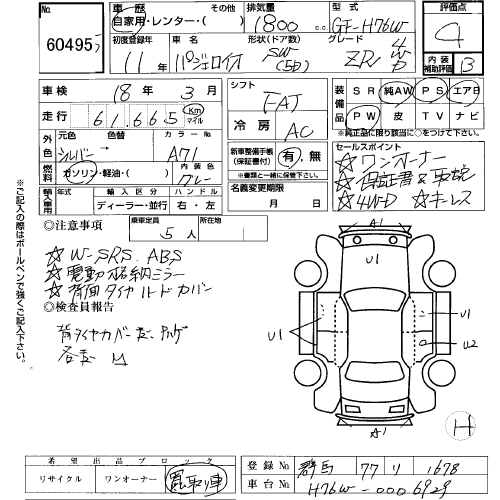 No.
60495
車歴
自家用・レンター・( )
その他
排気量
1800 cc
型式
GF-H76W
評価点
4
初度登録年
11年
車名
パジェロイオ
形状(ドア数)
SW (5D)
グレード
ZR 4WD
内装補助評価
B
車検
18年 3月
走行
61,665 Km マイル
シフト
FAT
冷房
AC
装備品
SR 純AW PS エアB
PW 皮 TV ナビ
※純正品に限り該当に○をつけて下さい
外色
元色
シルバー
色替
カラーNo
A71
燃料
ガソリン・軽油・( )
内装色
グレー
新車整備手帳(保証書付)
有・無
※書類と一緒に保管して下さい。
セールスポイント
☆ワンオーナー
☆保証書&車検
☆4WD ☆キーレス
輸入車用
年式
輸入区分
ディーラー・並行
ハンドル
右・左
名義変更期限
月 日
◎注意事項
乗車定員
5人
所在地
☆W-SRS. ABS
☆電動格納ミラー
☆背面タイヤハードカバー
◎検査員報告
背タイヤカバー
各キズ
※ご記入の際はボールペンで強くご記入下さい。
A1
U1
U1
U1
U2
A1
H
希望出品ブロック
リサイクル
ワンオーナー
買取り車
登録No
群馬 77 リ 1678
車台No
H76W-0006929